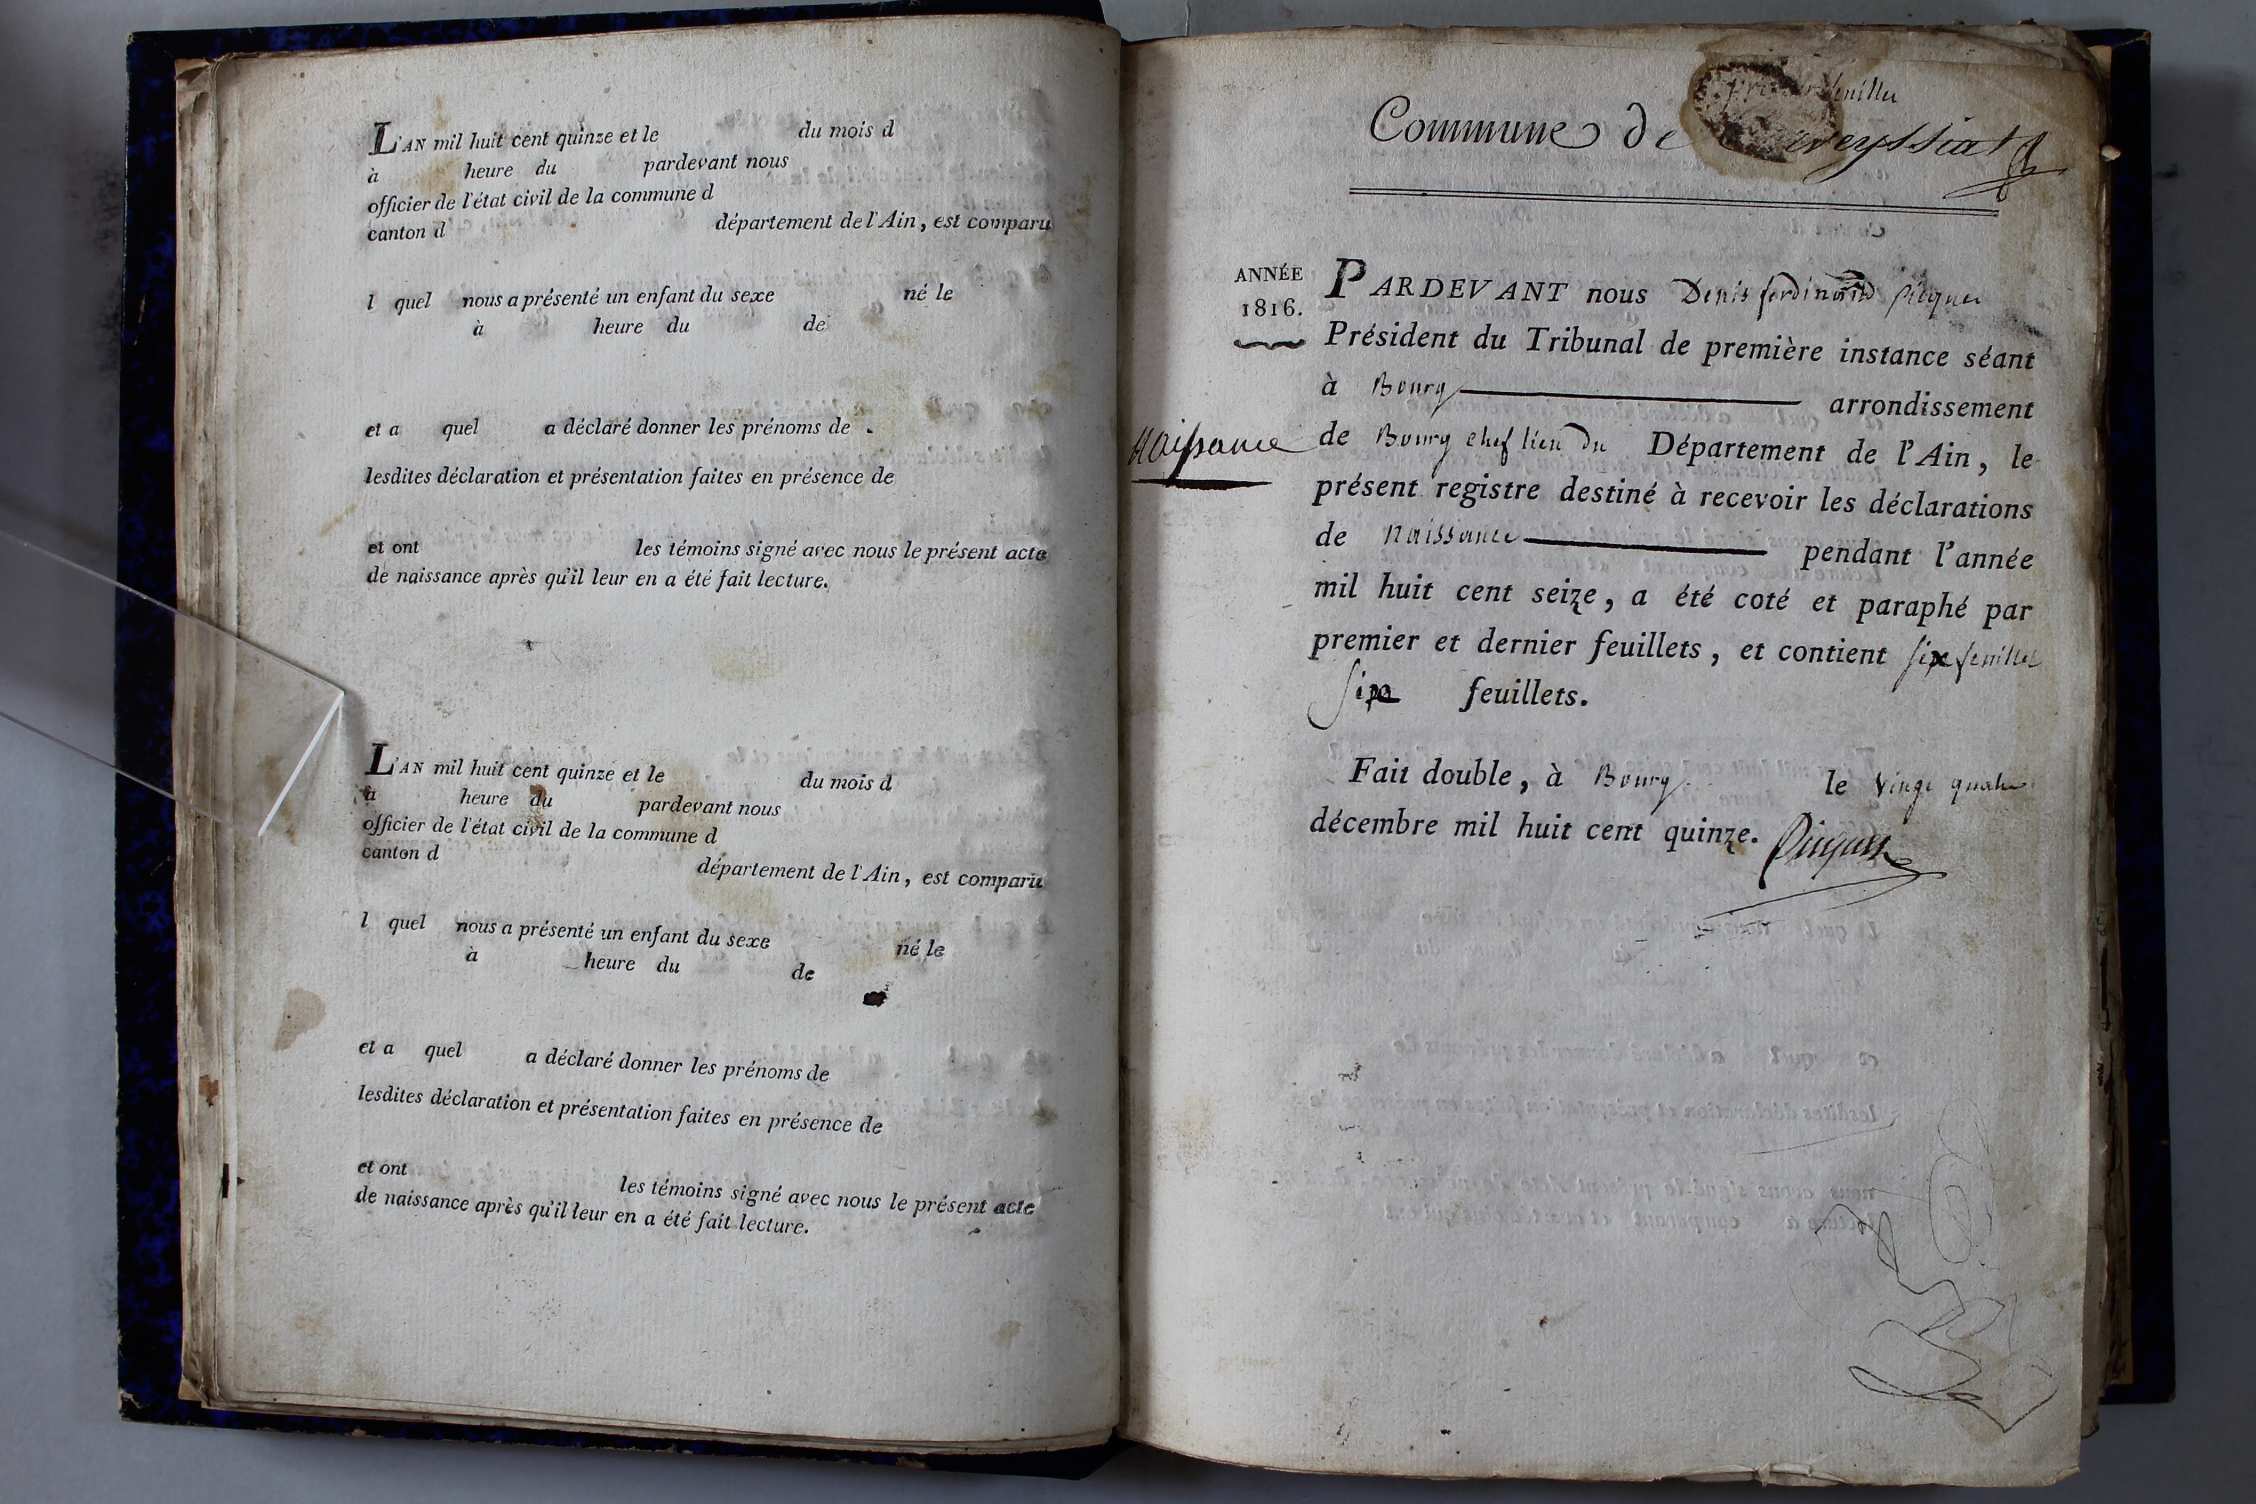 L'AN mil huit cent quinze et le du mois d
à heure du pardevant nous
officier de l'état civil de la commune d
canton d département de l'Ain, est comparu
l quel nous a présenté un enfant du sexe né le
à heure du de
et a quel a déclaré donner les prénoms de
lesdites déclaration et présentation faites en présence de
et ont les témoins signé avec nous le présent acte
de naissance après qu'il leur en a été fait lecture.
L'AN mil huit cent quinze et le du mois d
à heure du pardevant nous
officier de l'état civil de la commune d
canton d département de l'Ain, est comparu
l quel nous a présenté un enfant du sexe né le
à heure du de
et a quel a déclaré donner les prénoms de
lesdites déclaration et présentation faites en présence de
et ont les témoins signé avec nous le présent acte
de naissance après qu'il leur en a été fait lecture.
premier feuillet
Commune de
ANNÉE
1816.
Naissance
PARDEVANT nous Denis ferdinand Picquet
Président du Tribunal de première instance séant
à Bourg arrondissement
de Bourg chef lieu du Département de l'Ain, le
présent registre destiné à recevoir les déclarations
de naissance pendant l'année
mil huit cent seize, a été coté et paraphé par
premier et dernier feuillets, et contient six feuillet
six feuillets.
Fait double, à Bourg le vingt quatre
décembre mil huit cent quinze. Picquet